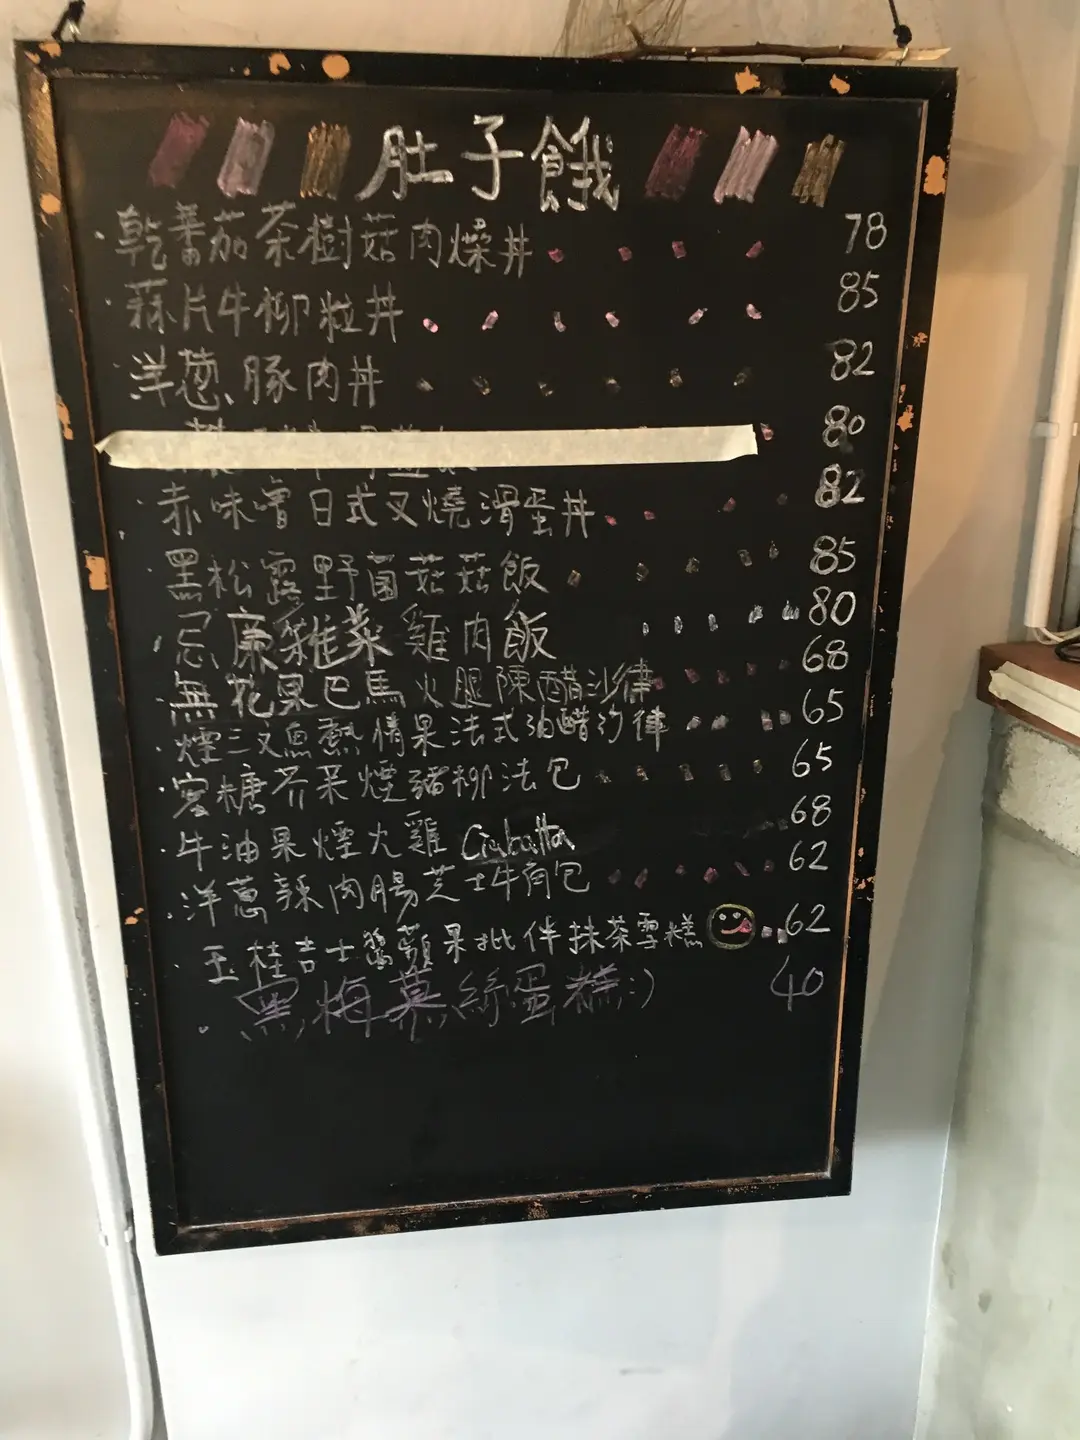 肚子餓
·乾蕃茄茶樹菇肉燥丼 78
·蒜片牛柳粒丼 85
·洋葱豚肉丼 82
80
·赤味噌日式叉燒滑蛋丼 82
·黑松露野菌菇菇飯 85
·忌廉雜菜雞肉飯 80
·無花果巴馬火腿陳醋沙律 68
·煙三文魚熱情果法式油醋沙律 65
·蜜糖芥末煙豬柳法包 65
·牛油果煙火雞 Ciabatta 68
·洋蔥辣肉腸芝士牛角包 62
·玉桂吉士醬蘋果批伴抹茶雪糕 62
·黑梅慕絲蛋糕:) 40